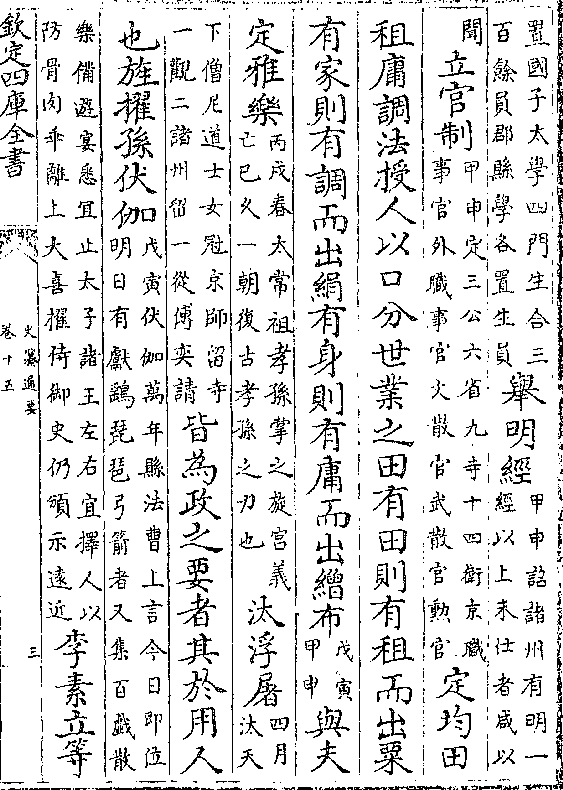 置國子太學四門生合三
百餘員郡縣學各置生員
舉明經
甲申詔諸州有明一
經以上未仕者咸以
聞
立官制
甲申定三公六省九寺十四衛京職
事官外職事官文散官武散官勲官
定均田
租庸調法授人以口分世業之田有田則有租而出粟
有家則有調而出絹有身則有庸而出繒布
戊寅
甲申
與夫
定雅樂
丙戌春太常祖孝孫掌之旋宮義
亡已久一朝復古孝孫之力也
汰浮屠
四月
汰天
下僧尼道士女冠京師留寺
一觀二諸州留一從傅奕請
皆為政之要者其於用人
也旌擢孫伏伽
戊寅伏伽萬年縣法曹上言今日即位
明日有獻鷂琵琶弓箭者又集百戲散
樂備遊宴悉宜止太子諸王左右宜擇人以
防骨肉乖離上大喜擢侍御史仍頒示遠近
李素立等
欽定四庫全書
史纂通要
卷十五
三